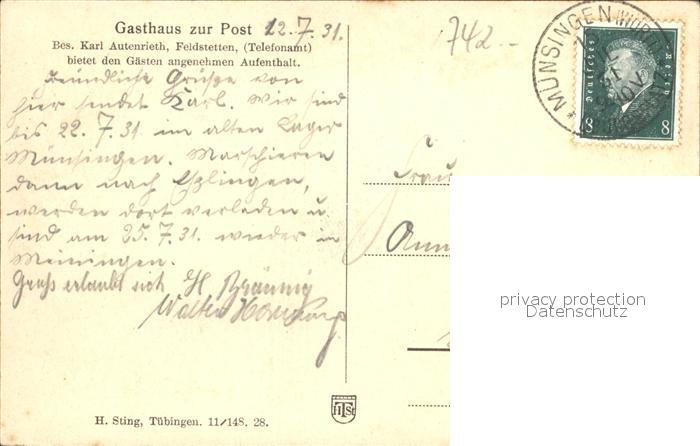 Gasthaus zur Post 12.7.31.
Bes. Karl Autenrieth, Feldstetten, (Telefonamt)
bietet den Gästen angenehmen Aufenthalt.
Freundliche Grüße von
hier sendet Karl. Wir sind
bis 22.7.31 im alten Lager
Münsingen. Marschieren
dann nach Eßlingen,
werden dort verladen u.
sind am 25.7.31. wieder in
Meiningen.
Gruß erlaubt sich H. Bräunig
Walter
H. Sting, Tübingen. 11/148. 28.
HTSt
742.-
MÜNSINGEN (WÜRTT
Deutsches Reich
8 8
Frau
Ann
privacy protection
Datenschutz